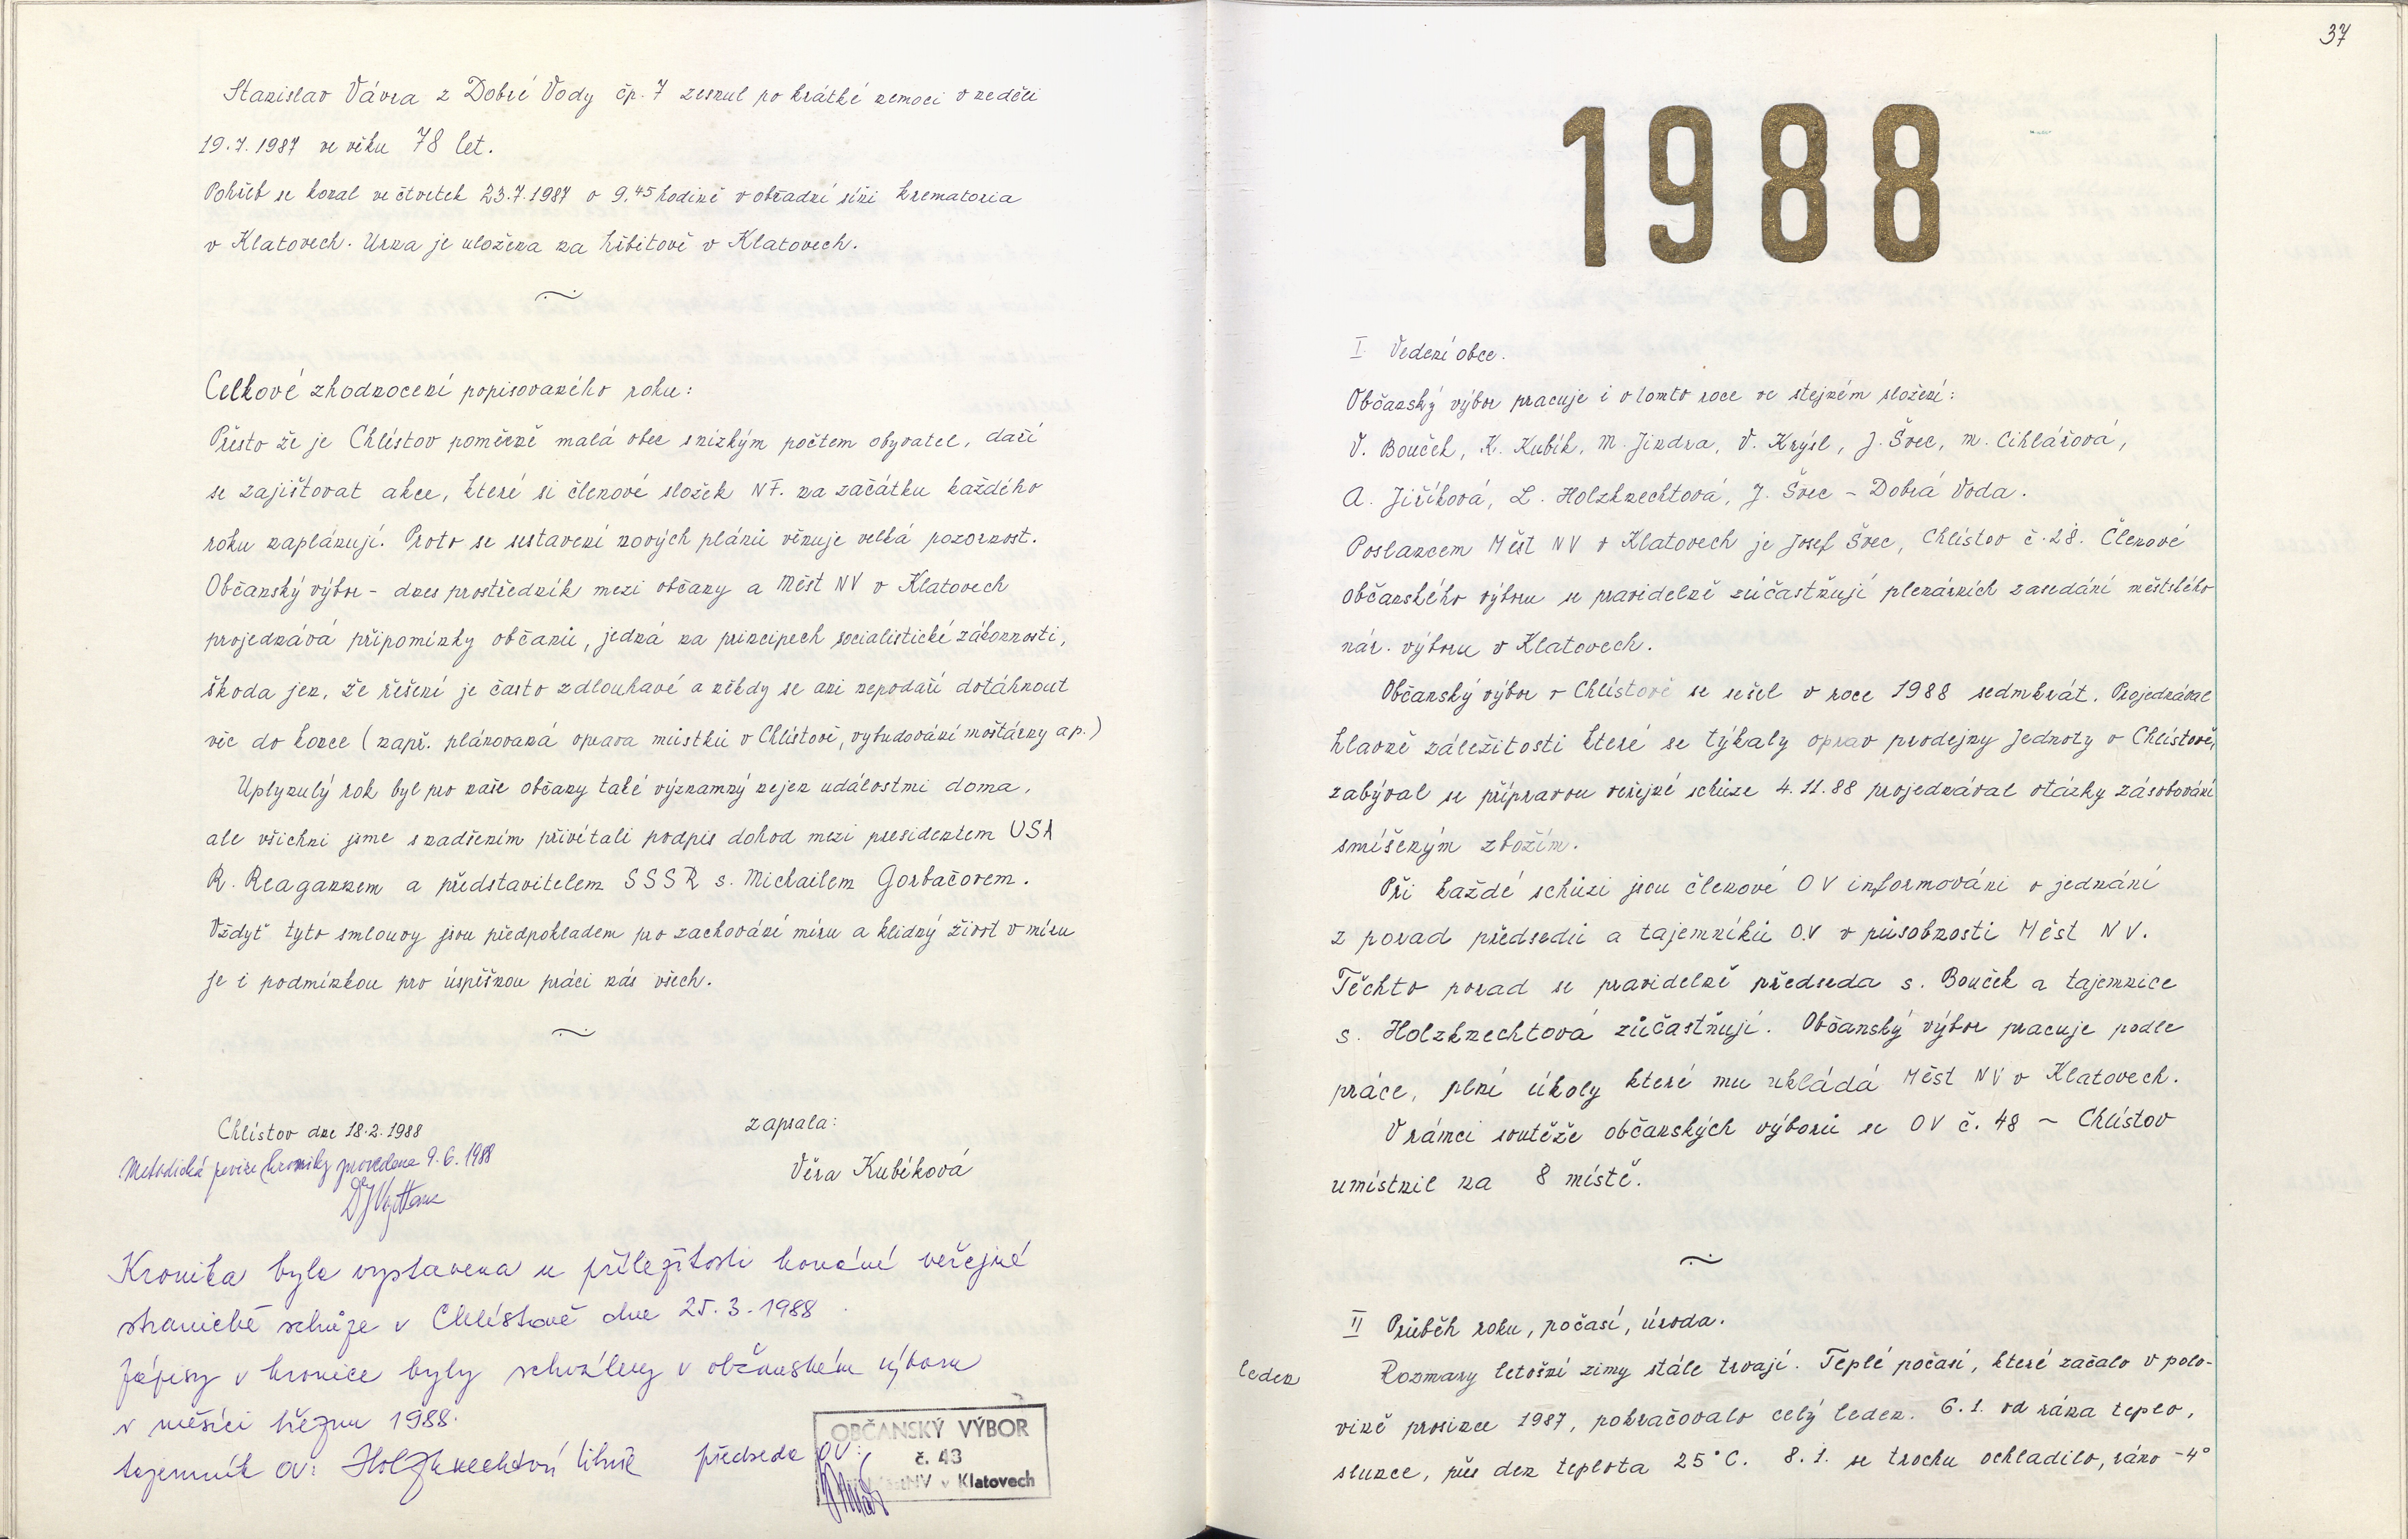 Stanislav Vávra z Dobré Vody čp. 7 zesnul po krátké nemoci v neděli
19.7.1987 ve věku 78 let.
Pohřeb se konal ve čtvrtek 23.7.1987 v 9.45 hodině v obřadní síni krematoria
v Klatovech. Urna je uložena na hřbitově v Klatovech.
Celkové zhodnocení popisovaného roku:
Přesto že je Chlístov poměrně malá obec snízkým počtem obyvatel, daří
se zajišťovat akce, které si členové složek NF. na začátku každého
roku naplánují. Proto se sestavení nových plánů věnuje velká pozornost.
Občanský výbor - dnes prostředník mezi občany a Měst NV v Klatovech
projednává připomínky občanů, jedná na principech socialistické zákonnosti,
škoda jen, že řešení je často zdlouhavé a někdy se ani nepodaří dotáhnout
věc do konce (např. plánovaná oprava můstků v Chlístově, vybudování moštárny ap.)
Uplynulý rok byl pro naše občany také významný nejen událostmi doma,
ale všichni jsme s nadšením přivítali podpis dohod mezi presidentem USA
R. Reagannem a představitelem SSSR s. Michailem Gorbačovem.
Vždyť tyto smlouvy jsou předpokladem pro zachování míru a klidný život v míru
je i podmínkou pro úspěšnou práci nás všech.
Chlístov dne 18.2.1988 zapsala:
Metodická revize kroniky provedena 9.6.1988
Věra Kubíková
Kronika byla vystavena u příležitosti konání veřejné
stranické schůze v Chlístově dne 25.3.1988
Zápisy v kronice byly schváleny v občanském výboru
v měsíci březnu 1988.
tajemník OV: Holzknechtová Libuše předseda OV:
OBČANSKÝ VÝBOR
č. 43
MěstNV v Klatovech
37
1988
I Vedení obce.
Občanský výbor pracuje i v tomto roce ve stejném složení:
V. Bouček, K. Kubík, M. Jindra, V. Krýsl, J. Švec, M. Cihlářová,
A. Jiříková, L. Holzknechtová, J. Švec - Dobrá Voda.
Poslancem Měst NV v Klatovech je Josef Švec, Chlístov č. 28. Členové
občanského výboru se pravidelně zúčastňují plenárních zasedání městského
nár. výboru v Klatovech.
Občanský výbor v Chlístově se sešel v roce 1988 sedmkrát. Projednával
hlavně záležitosti které se týkaly oprav prodejny Jednoty v Chlístově,
zabýval se přípravou veřejné schůze 4.11.88 projednával otázky zásobování
smíšeným zbožím.
Při každé schůzi jsou členové OV informováni o jednání
z porad předsedů a tajemníků OV v působnosti Měst NV.
Těchto porad se pravidelně předseda s. Bouček a tajemnice
s. Holzknechtová zúčastňují. Občanský výbor pracuje podle
práce, plní úkoly které mu ukládá Měst NV v Klatovech.
V rámci soutěže občanských výborů se OV č. 48 - Chlístov
umístnil na 8 místě.
II Průběh roku, počasí, úroda.
leden Rozmary letošní zimy stále trvají. Teplé počasí, které začalo v polo-
vině prosince 1987, pokračovalo celý leden. 6.1. od rána teplo,
slunce, přes den teplota 25°C. 8.1. se trochu ochladilo, ráno -4°